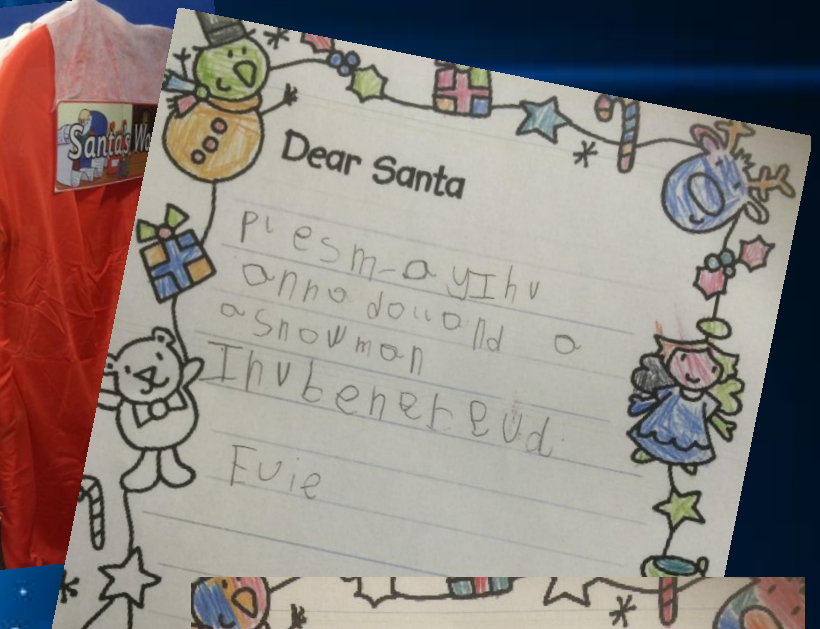 Santa's Wo
Dear Santa
pl esm-a yIhv
anna doll and a
a snowman
Ihvbenereud
Evie